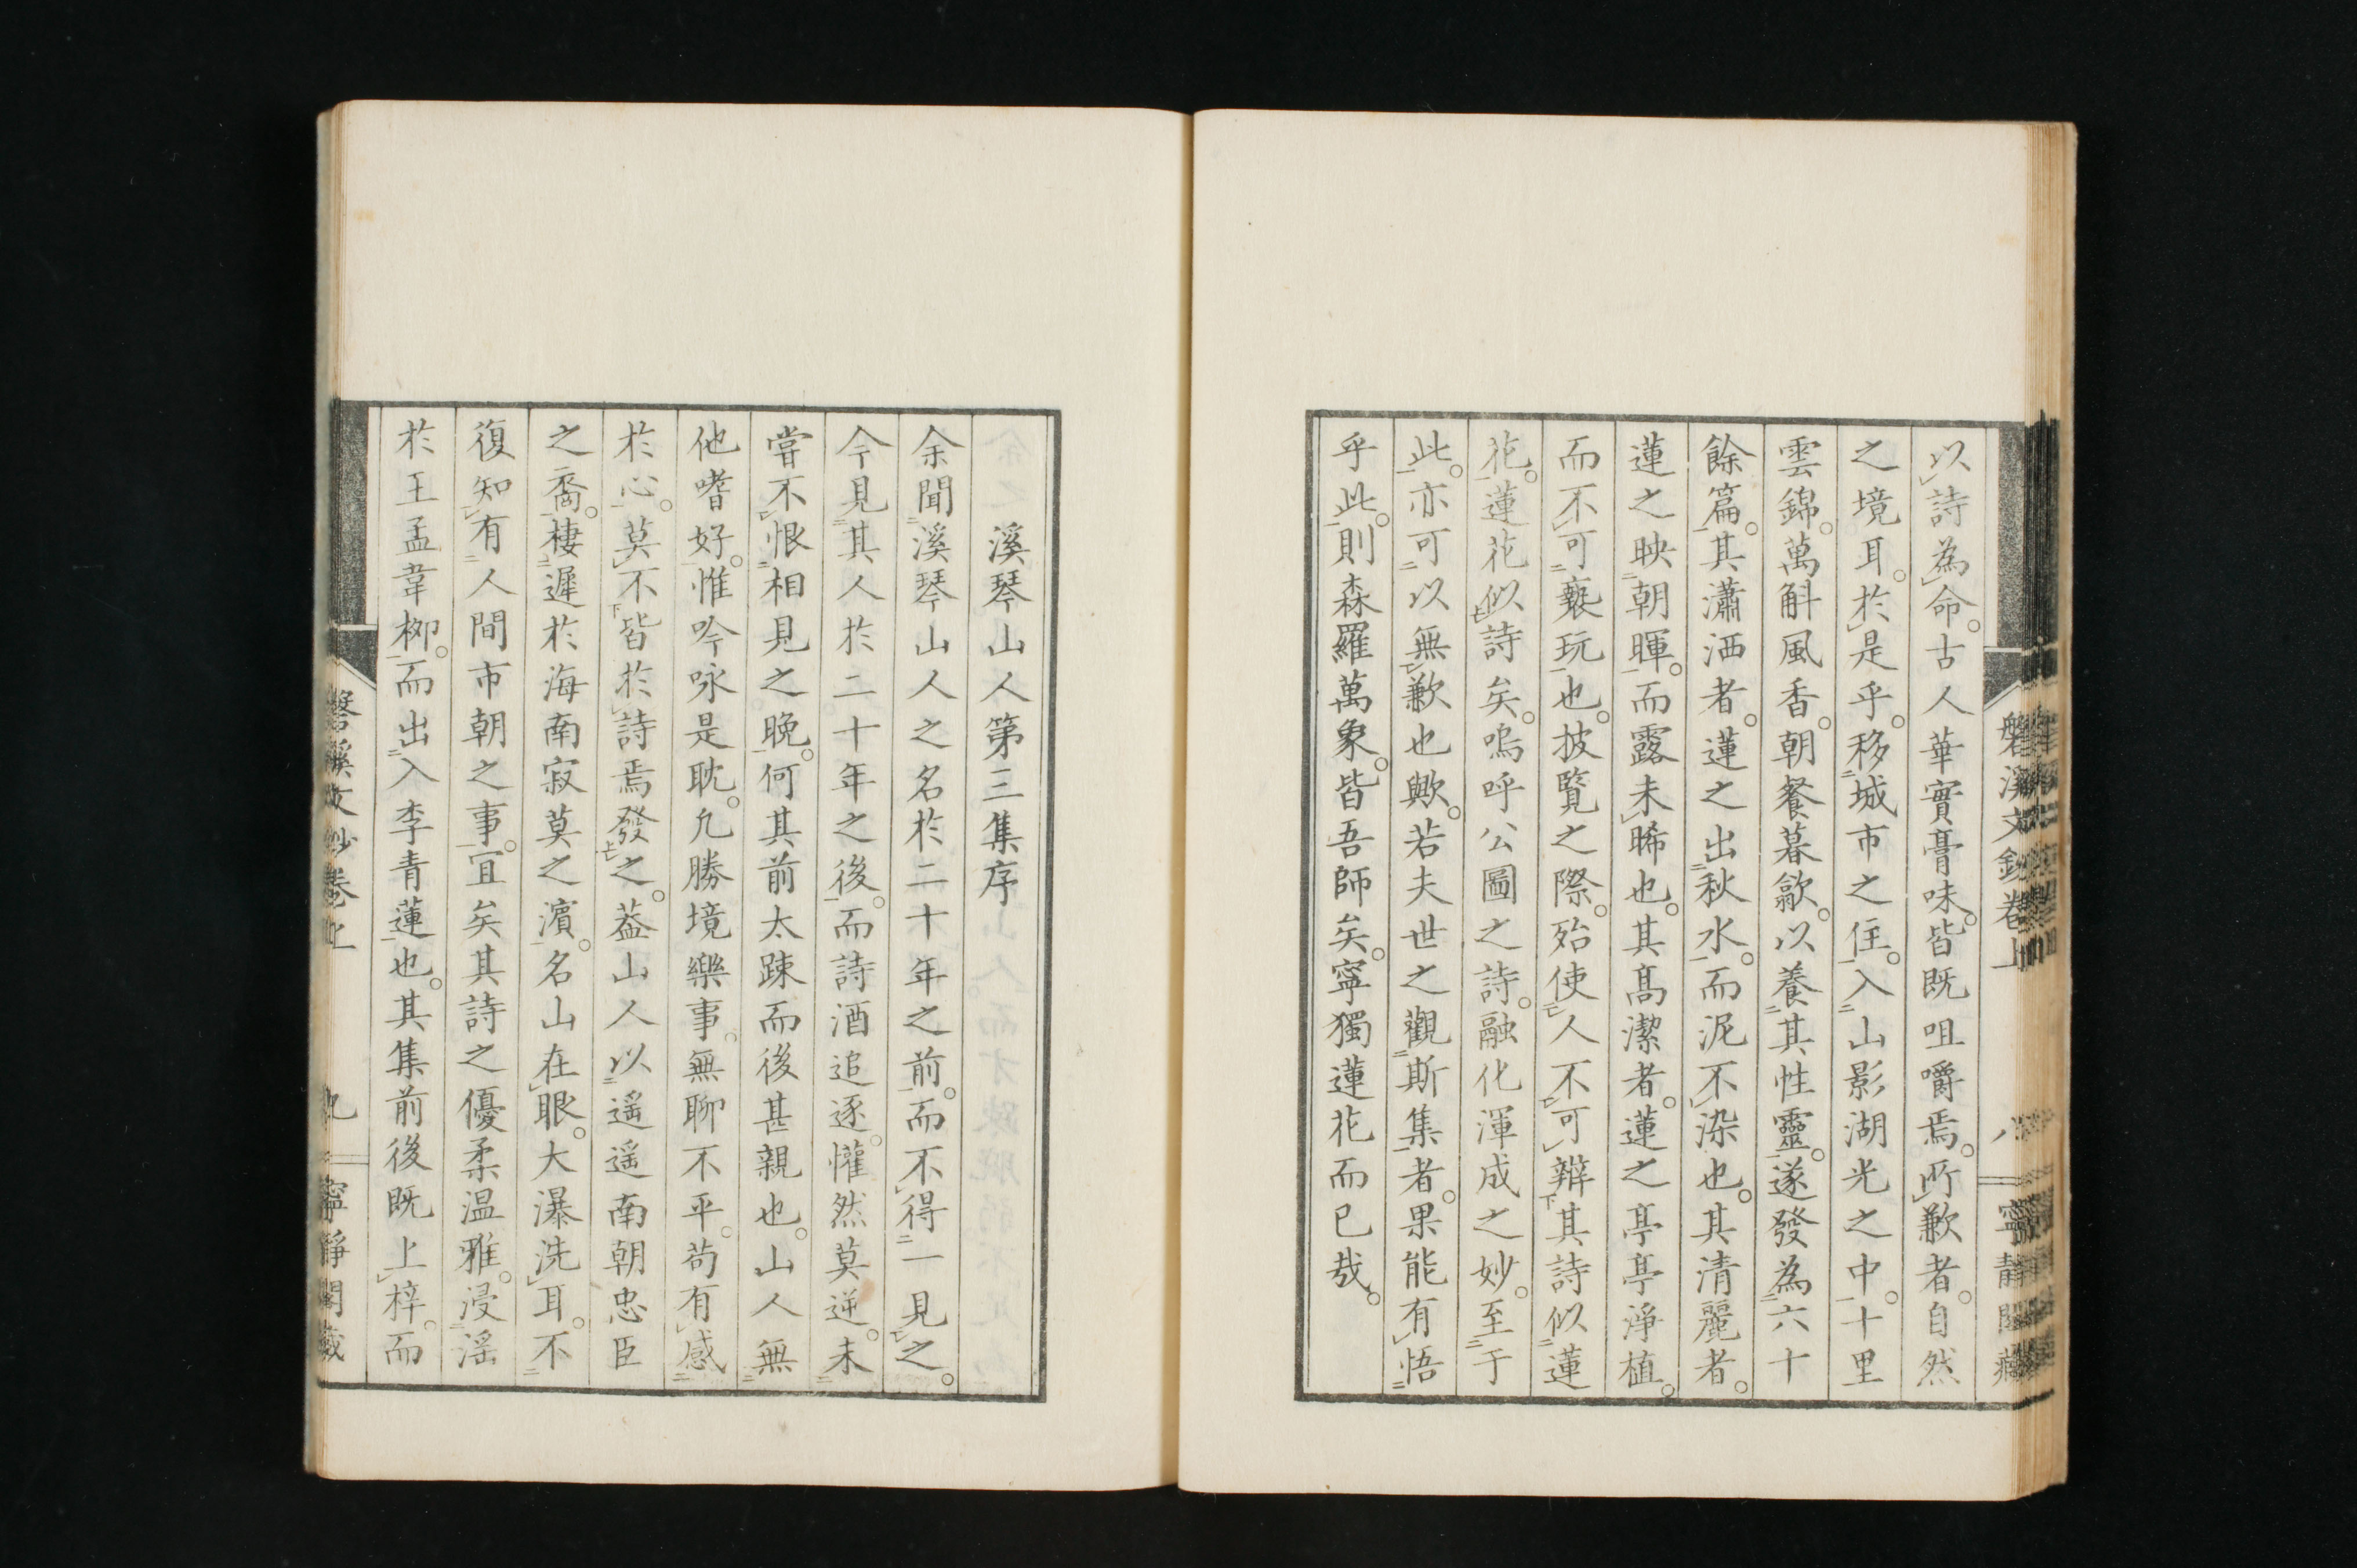 磐溪文鈔卷上 八 寧靜閣藏
以詩為命。古人華實膏味。皆既咀嚼焉。所歉者。自然
之境耳。於是乎。移城市之住。入山影湖光之中。十里
雲錦。萬斛風香。朝餐暮歙。以養其性靈。遂發為六十
餘篇。其瀟洒者。蓮之出秋水。而泥不染也。其清麗者。
蓮之映朝暉。而露未晞也。其高潔者。蓮之亭亭淨植。
而不可褻玩也。披覽之際。殆使人不可辯其詩似蓮
花。蓮花似詩矣。嗚呼公圖之詩。融化渾成之妙。至于
此。亦可以無歉也歟。若夫世之觀斯集者。果能有悟
乎此。則森羅萬象。皆吾師矣。寧獨蓮花而已哉。
溪琴山人第三集序
余聞溪琴山人之名於二十年之前。而不得一見之。
今見其人於二十年之後。而詩酒追逐。懽然莫逆。未
嘗不恨相見之晚。何其前太疎而後甚親也。山人無
他嗜好。惟吟咏是耽。凢勝境樂事。無聊不平。苟有感
於心。莫不皆於詩焉發之。葢山人以遥遥南朝忠臣
之裔。棲遲於海南寂莫之濵。名山在眼。大瀑洗耳。不
復知有人間市朝之事。宜矣其詩之優柔温雅。浸滛
於王孟韋栁。而出入李青蓮也。其集前後既上梓。而
磐溪文鈔卷上 九 寧靜閣藏